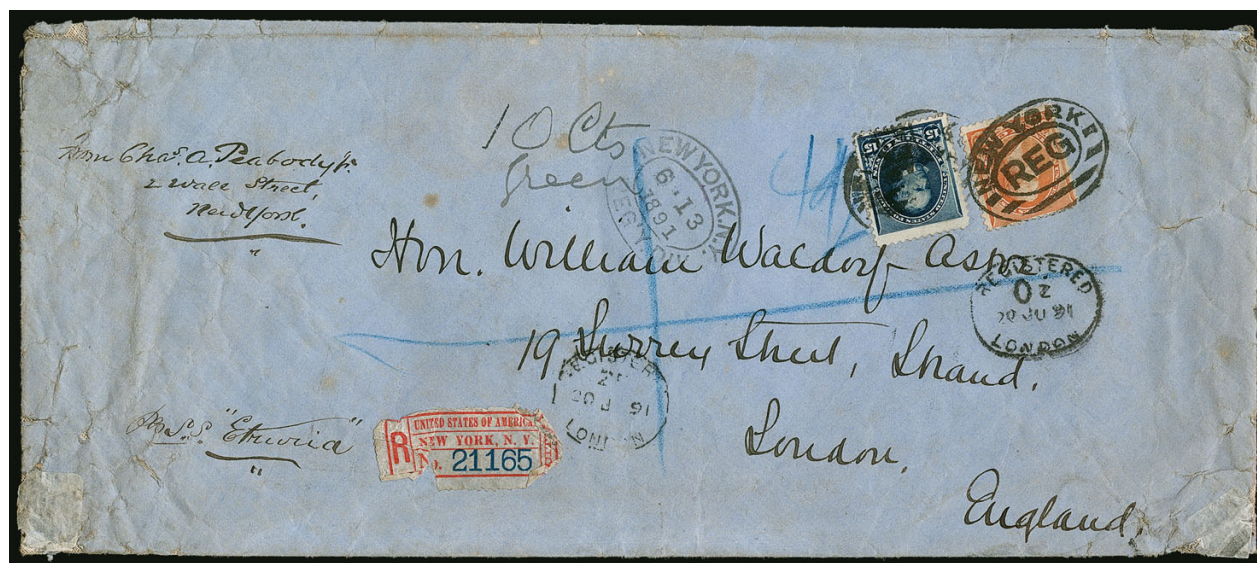 From Chas. A. Peabody Jr.
2 Wall Street,
New York.
10 Cts
Green
NEW YORK, N.Y.
6-13
1891
REG'Y. DIV.
15 15
NEW YORK
REG
Hon. William Waldorf Astor
19 Surrey Street, Strand.
London.
England.
REGISTERED
20 JU 91
LONDON
REGISTER
20 J 91
LON N
Per S.S. "Etruria"
R
UNITED STATES OF AMERICA
NEW YORK, N. Y.
No. 21165